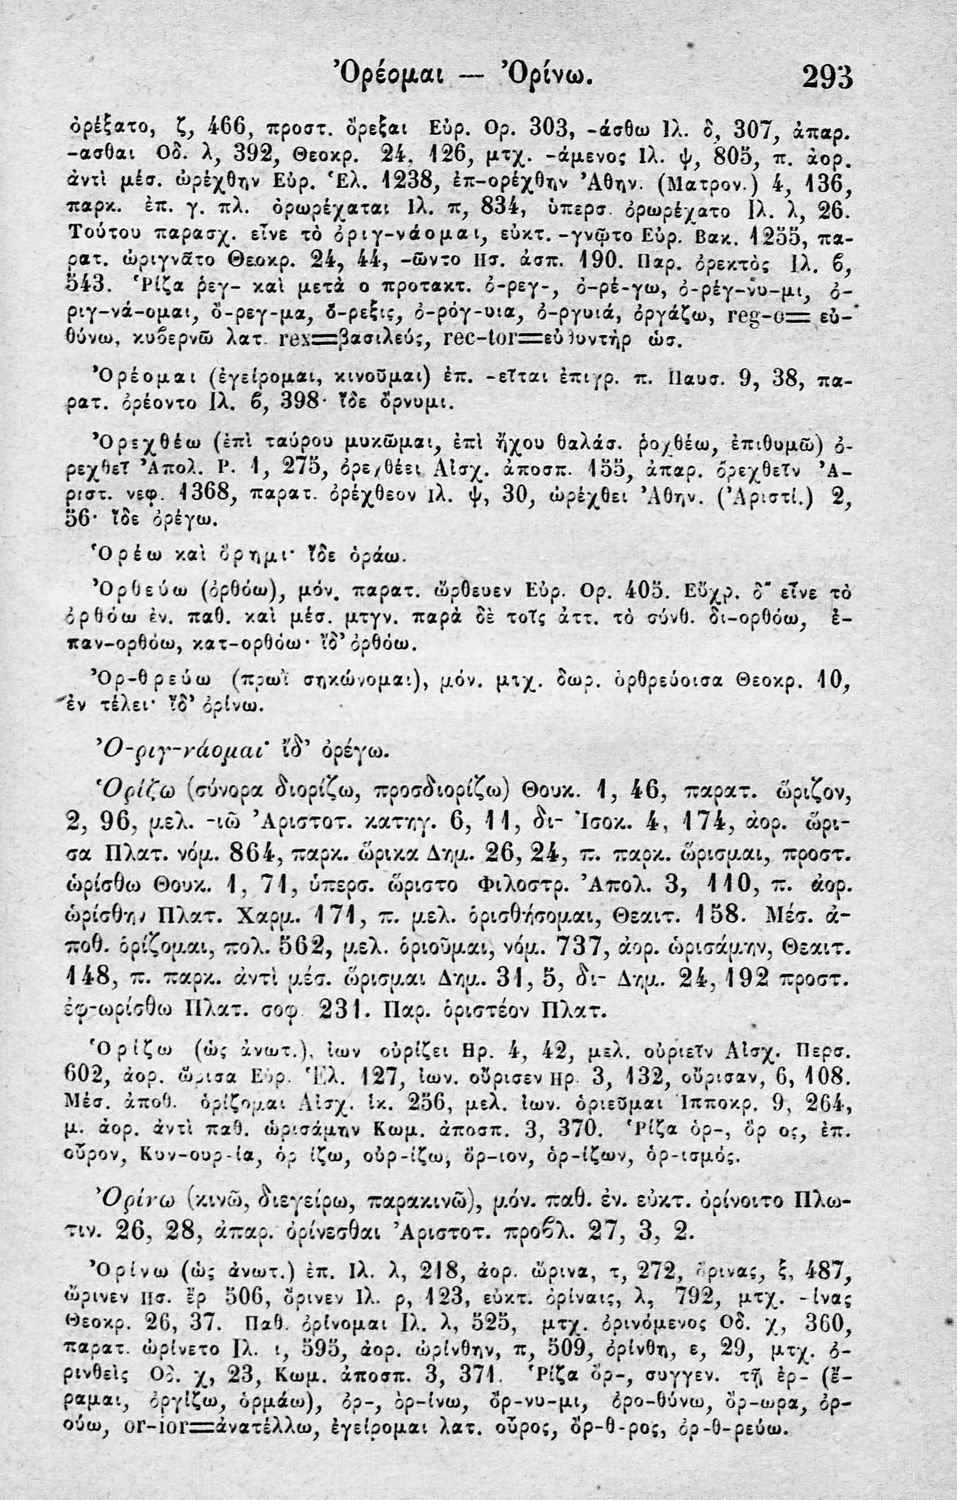 Ὀρέομαι — Ὀρίνω. 293
ὀρέξατο, ζ, 466, προστ. ὄρεξαι Εὐρ. Ορ. 303, -άσθω Ιλ. δ, 307, ἀπαρ.
-ασθαι Οδ. λ, 392, Θεοκρ. 24, 126, μτχ. -άμενος Ιλ. ψ, 805, π. ἀορ.
ἀντὶ μέσ. ὠρέχθην Εὐρ. Ἑλ. 1238, ἐπ-ορέχθην Ἀθην. (Ματρον.) 4, 136,
παρκ. ἐπ. γ. πλ. ὀρωρέχαται Ιλ. π, 834, ὑπερσ. ὀρωρέχατο Ιλ. λ, 26.
Τούτου παρασχ. εἶνε τὸ ὀριγ-νάομαι, εὐκτ. -γνῷτο Εὐρ. Βακ. 1255, πα-
ρατ. ὠριγνᾶτο Θεοκρ. 24, 44, -ῶντο Ησ. ἀσπ. 190. Παρ. ὀρεκτὸς Ιλ. β,
543. Ῥίζα ῥεγ- καὶ μετὰ ο προτακτ. ὀ-ρεγ-, ὀ-ρέ-γω, ὀ-ρέγ-νυ-μι, ὀ-
ριγ-νά-ομαι, ὄ-ρεγ-μα, ὄ-ρεξις, ὀ-ρόγ-υια, ὀ-ργυιά, ὀργάζω, reg-o=εὐ-
θύνω, κυβερνῶ λατ. rex=βασιλεύς, rec-tor=εὐθυντὴρ ὡσ.
Ὀρέομαι (ἐγείρομαι, κινοῦμαι) ἐπ. -εῖται ἐπιγρ. π. Παυσ. 9, 38, πα-
ρατ. ὀρέοντο Ιλ. β, 398· ἴδε ὄρνυμι.
Ὀρεχθέω (ἐπὶ ταύρου μυκῶμαι, ἐπὶ ἤχου θαλάσ. ῥοχθέω, ἐπιθυμῶ) ὀ-
ρεχθεῖ Ἀπολ. Ρ. 1, 275, ὀρεχθέει Αἰσχ. ἀποσπ. 155, ἀπαρ. ὀρεχθεῖν Ἀ-
ριστ. νεφ. 1368, παρατ. ὀρέχθεον Ιλ. ψ, 30, ὠρέχθει Ἀθην. (Ἀριστί.) 2,
56· ἴδε ὀρέγω.
Ὁρέω καὶ ὅρημι· ἴδε ὁράω.
Ὀρθεύω (ὀρθόω), μόν. παρατ. ὤρθευεν Εὐρ. Ορ. 405. Εὔχρ. δ' εἶνε τὸ
ὀρθόω ἐν. παθ. καὶ μέσ. μτγν. παρὰ δὲ τοῖς ἀττ. τὸ σύνθ. δι-ορθόω, ἐ-
παν-ορθόω, κατ-ορθόω· ἴδ' ὀρθόω.
Ὀρ-θρεύω (πρωῒ σηκώνομαι), μόν. μτχ. δωρ. ὀρθρεύοισα Θεοκρ. 10,
ἐν τέλει· ἴδ' ὀρίνω.
Ὀ-ριγ-νάομαι· ἴδ' ὀρέγω.
Ὁρίζω (σύνορα διορίζω, προσδιορίζω) Θουκ. 1, 46, παρατ. ὥριζον,
2, 96, μελ. -ιῶ Ἀριστοτ. κατηγ. 6, 11, δι- Ἰσοκ. 4, 174, ἀορ. ὥρι-
σα Πλατ. νόμ. 864, παρκ. ὥρικα Δημ. 26, 24, π. παρκ. ὥρισμαι, προστ.
ὡρίσθω Θουκ. 1, 71, ὑπερσ. ὥριστο Φιλοστρ. Ἀπολ. 3, 110, π. ἀορ.
ὡρίσθην Πλατ. Χαρμ. 171, π. μελ. ὁρισθήσομαι, Θεαιτ. 158. Μέσ. ἀ-
ποθ. ὁρίζομαι, πολ. 562, μελ. ὁριοῦμαι, νόμ. 737, ἀορ. ὡρισάμην, Θεαιτ.
148, π. παρκ. ἀντὶ μέσ. ὥρισμαι Δημ. 31, 5, δι- Δημ. 24, 192 προστ.
ἐφ-ωρίσθω Πλατ. σοφ. 231. Παρ. ὁριστέον Πλατ.
Ὁρίζω (ὡς ἀνωτ.), ἰων οὐρίζει Ηρ. 4, 42, μελ. οὐριεῖν Αἰσχ. Περσ.
602, ἀορ. ὥρισα Εὐρ. Ἑλ. 127, ἰων. οὔρισεν Ηρ. 3, 132, οὔρισαν, 6, 108.
Μέσ. ἀποθ. ὁρίζομαι Αἰσχ. ἱκ. 256, μελ. ἰων. ὁριεῦμαι Ἱπποκρ. 9, 264,
μ. ἀορ. ἀντὶ παθ. ὡρισάμην Κωμ. ἀποσπ. 3, 370. Ῥίζα ὁρ-, ὅρ ος, ἐπ.
οὖρον, Κυν-ουρ-ία, ὁρ ίζω, οὐρ-ίζω, ὅρ-ιον, ὁρ-ίζων, ὁρ-ισμός.
Ὀρίνω (κινῶ, διεγείρω, παρακινῶ), μόν. παθ. ἐν. εὐκτ. ὀρίνοιτο Πλω-
τιν. 26, 28, ἀπαρ. ὀρίνεσθαι Ἀριστοτ. προβλ. 27, 3, 2.
Ὀρίνω (ὡς ἀνωτ.) ἐπ. Ιλ. λ, 218, ἀορ. ὤρινα, τ, 272, ὄρινας, ξ, 487,
ὤρινεν Ησ. ἔρ 506, ὄρινεν Ιλ. ρ, 123, εὐκτ. ὀρίναις, λ, 792, μτχ. -ίνας
Θεοκρ. 26, 37. Παθ. ὀρίνομαι Ιλ. λ, 525, μτχ. ὀρινόμενος Οδ. χ, 360,
παρατ. ὠρίνετο Ιλ. ι, 595, ἀορ. ὠρίνθην, π, 509, ὀρίνθη, ε, 29, μτχ. ὀ-
ρινθεὶς Οδ. χ, 23, Κωμ. ἀποσπ. 3, 371. Ῥίζα ὀρ-, συγγεν. τῇ ἐρ- (ἔ-
ραμαι, ὀργίζω, ὁρμάω), ὀρ-, ὀρ-ίνω, ὄρ-νυ-μι, ὀρο-θύνω, ὄρ-ωρα, ὀρ-
ούω, or-ior=ἀνατέλλω, ἐγείρομαι λατ. οὖρος, ὄρ-θ-ρος, ὀρ-θ-ρεύω.